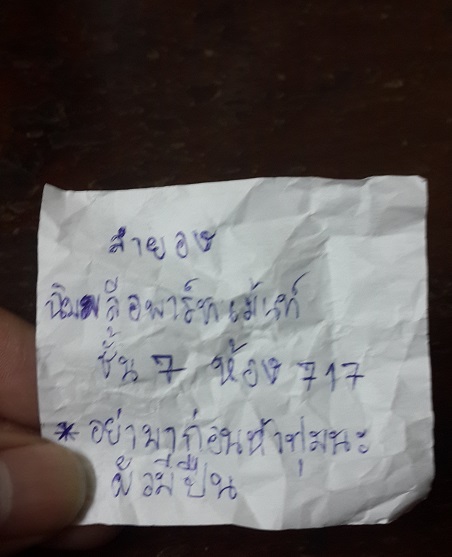 ลำยอง
ฉิมพลีอพาร์ทเม้นท์
ชั้น 7 ห้อง 717
* อย่ามาก่อนห้าทุ่มนะ
ผัวมีปืน